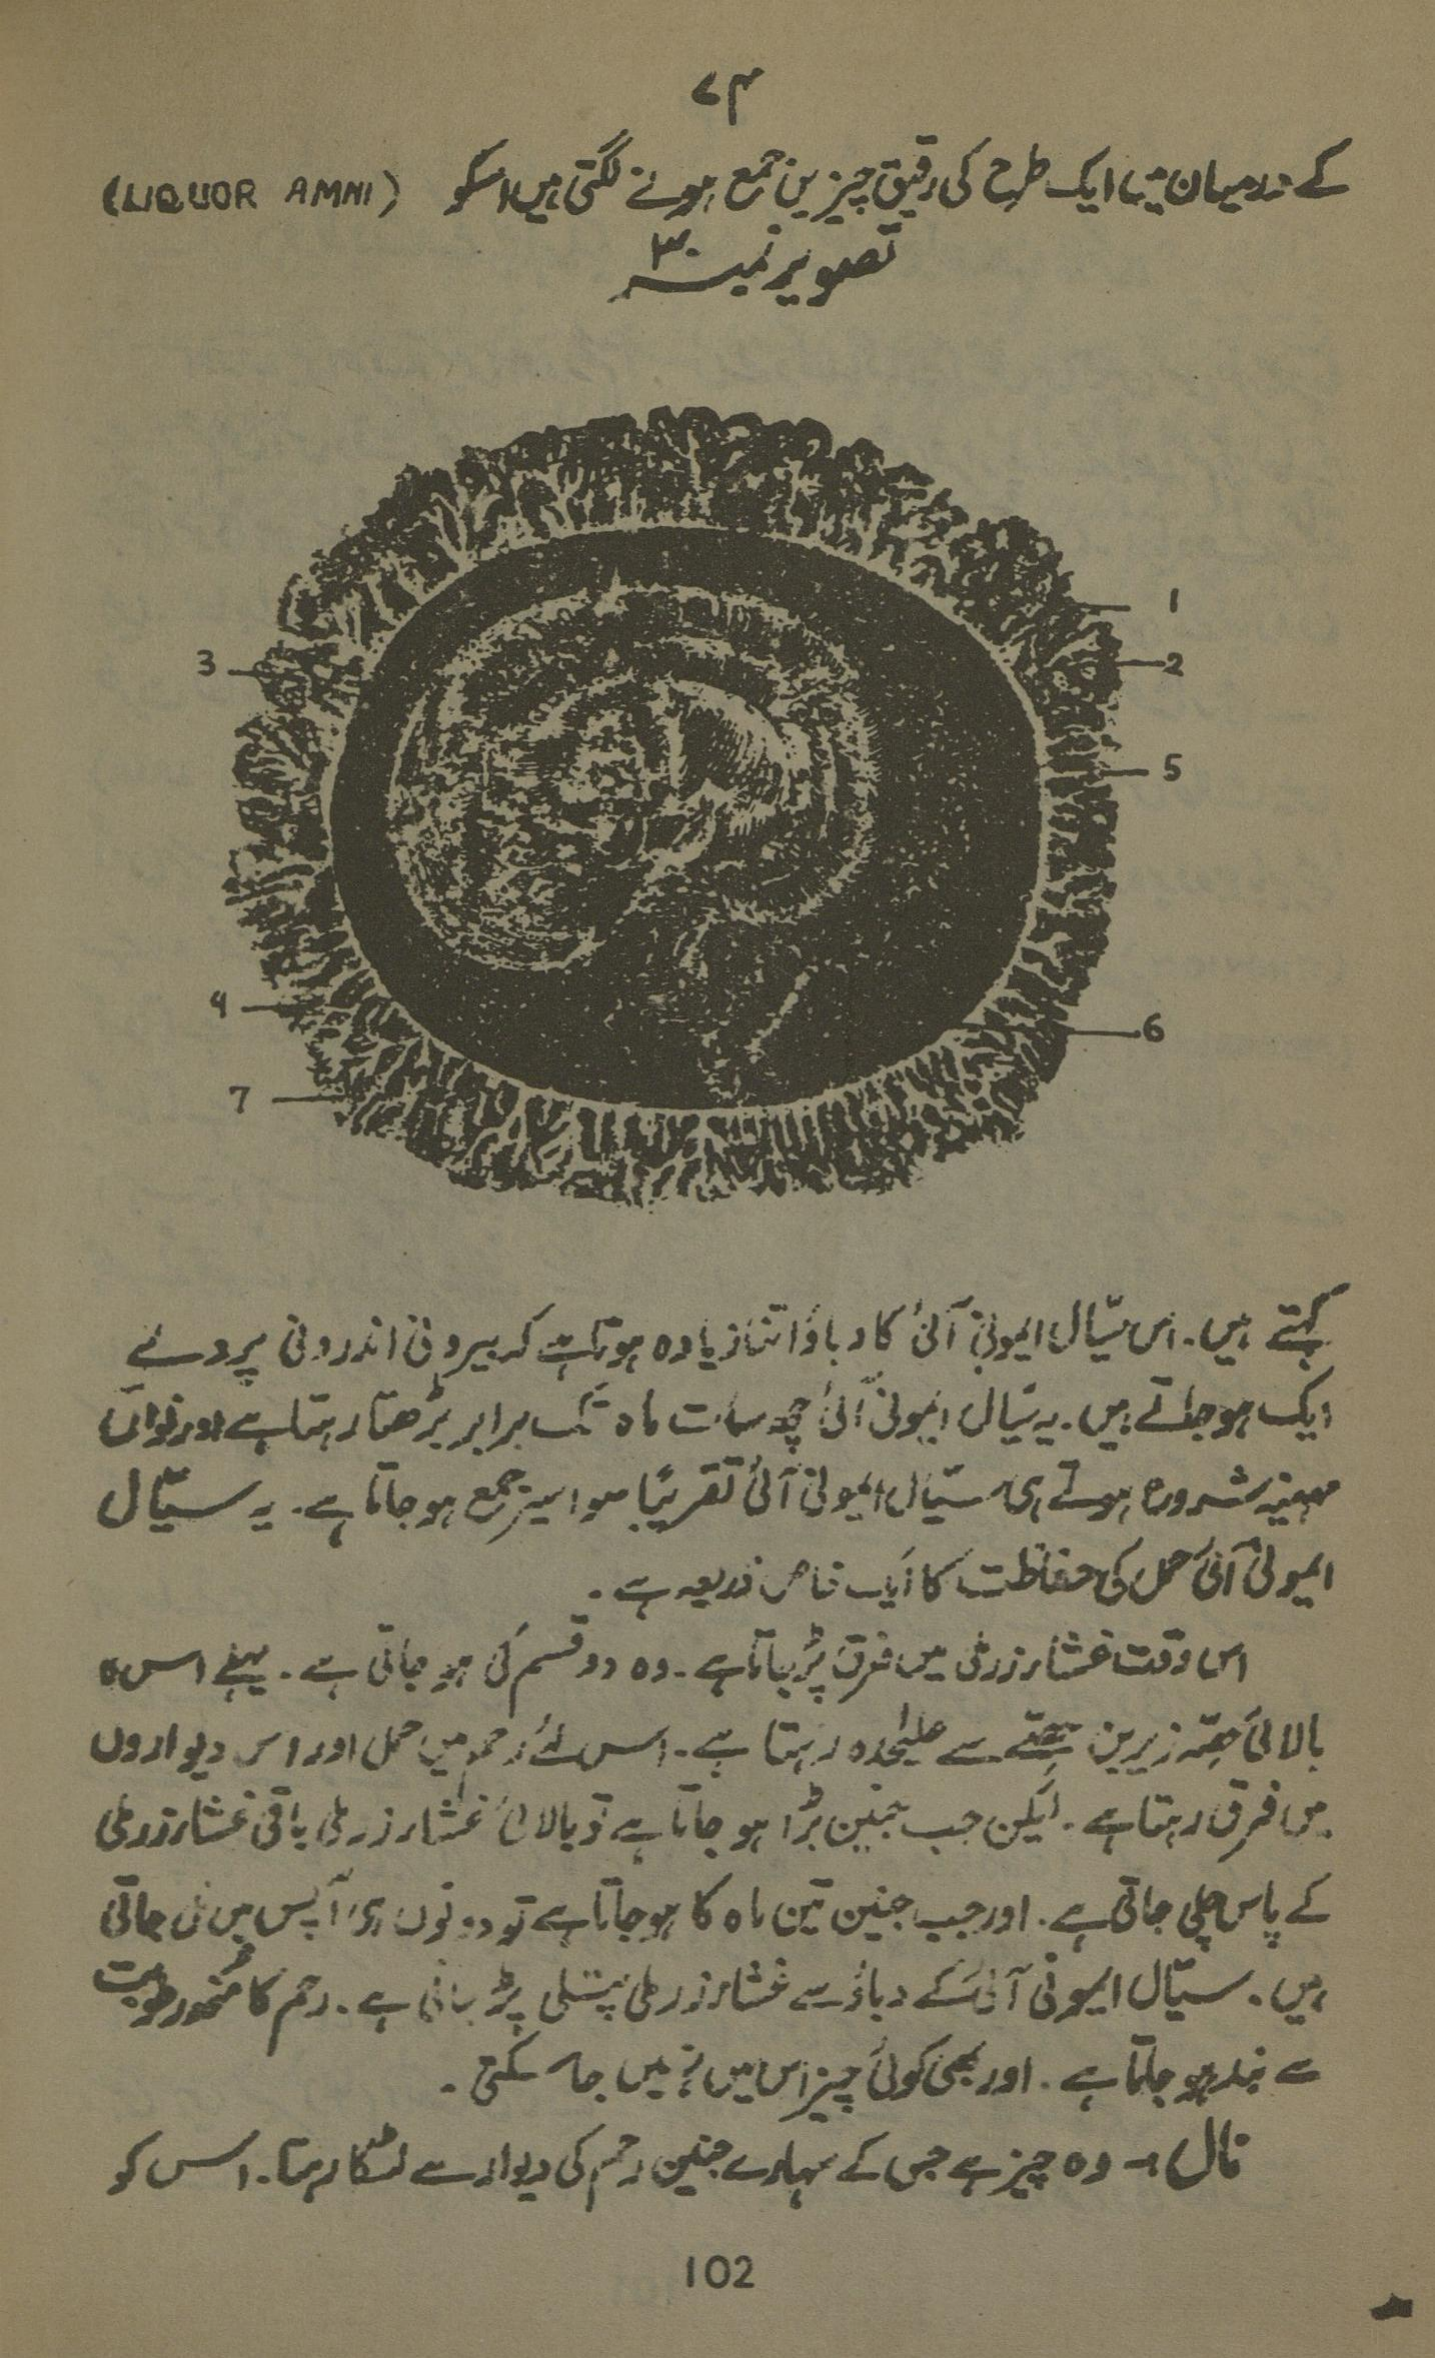 ۷۴
کے درمیان میں ایک طرح کی رقیق چیزیں جمع ہونے لگتی ہیں اسکو (LIQUOR AMNI)
تصویر نمبر ۳۰
1
2
3
5
4
6
7
کہتے ہیں۔ اس سیّال ایمونی آئی کا دباؤ اتنا زیادہ ہوتا ہے کہ بیرونی اندرونی پردے
ایک ہو جاتے ہیں۔ یہ سیّال ایمونی آئی چھ سات ماہ تک برابر بڑھتا رہتا ہے اور نواں
مہینہ شروع ہوتے ہی سیّال ایمونی آئی تقریبًا سوا سیر جمع ہو جاتا ہے۔ یہ سیّال
ایمونی آئی حمل کی حفاظت کا ایک خاص ذریعہ ہے۔
اس وقت غشاء زرملی میں فرق پڑ جاتا ہے۔ وہ دو قسم کی ہو جاتی ہے۔ پہلے اس کا
بالائی حصّہ زیریں حصّے سے علیٰحدہ رہتا ہے۔ اس لئے رحم میں حمل اور اس دیواروں
میں فرق رہتا ہے۔ لیکن جب جنین بڑا ہو جاتا ہے تو بالائی غشاء زرملی باقی غشاء زرملی
کے پاس چلی جاتی ہے۔ اور جب جنین تین ماہ کا ہو جاتا ہے تو دونوں ہی آپس میں مل جاتی
ہیں۔ سیّال ایمونی آئی کے دباؤ سے غشاء زرملی پتلی پڑ جاتی ہے۔ رحم کا منھ رطوبت
سے بند ہو جاتا ہے۔ اور بھی کوئی چیز اس میں نہیں جا سکتی۔
نال :- وہ چیز ہے جس کے سہارے جنین رحم کی دیوار سے لٹکا رہتا۔ اس کو
102